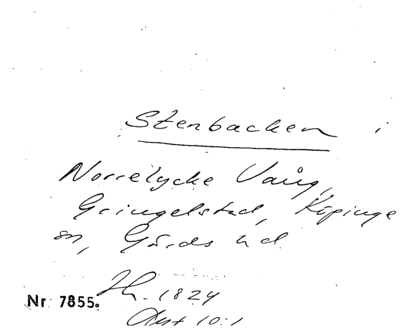 Stenbacken i
Norrelycke Vång,
Gringelstad, Köpinge
sn, Gärds hd
Jh. 1824
Akt 10:1
Nr 7855.